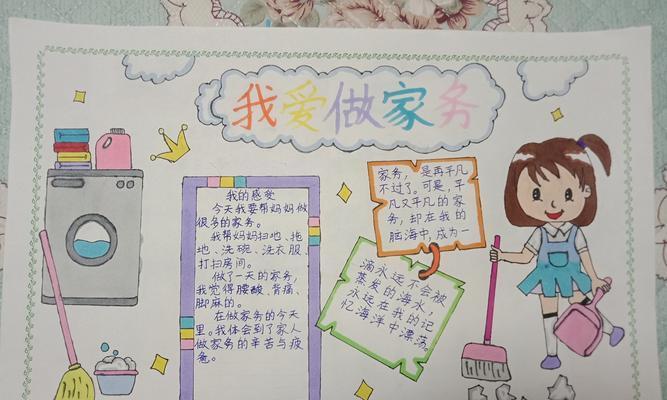 我爱做家务
我的感受
今天我要帮妈妈做
很多的家务。
我帮妈妈扫地、拖
地、洗碗、洗衣服、
打扫房间。
做了一天的家务,
我觉得腰酸、背痛、
脚麻的。
在做家务的今天
里。我体会到了家人
做家务的辛苦与疲
惫。
家务,是再平凡
不过了。可是,平
凡又平凡的家
务,却在我的
脑海中,成为一
滴永远不会被
蒸发的海水,
永远在我的记
忆海洋中漂荡。